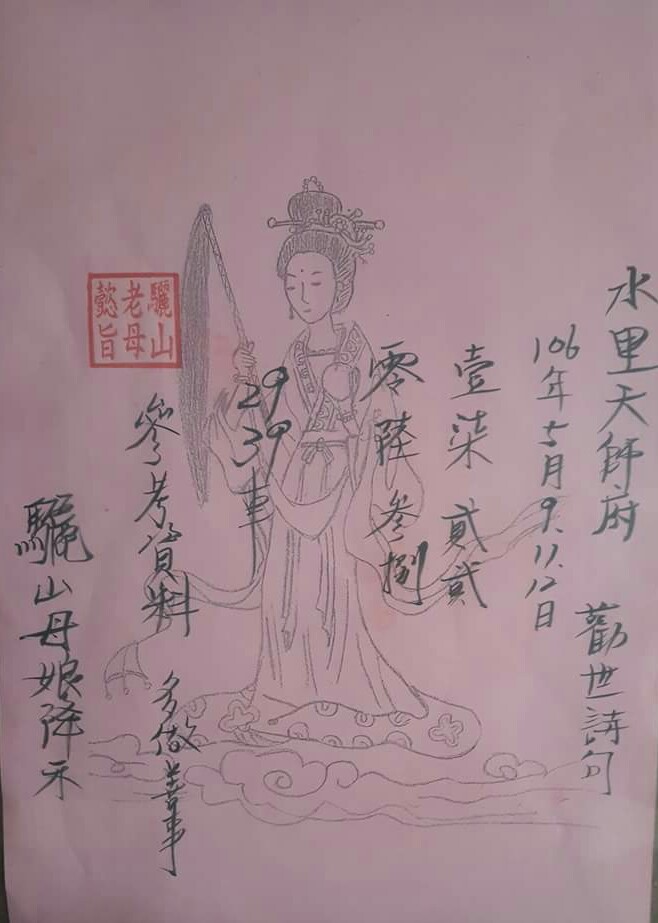 水里天師府 勸世詩句
106年5月9.11.12日
壹柒 貳貳
零陸 叁捌
29 39車
參考資料 多做善事
驪山母娘降示
驪山
老母
懿旨